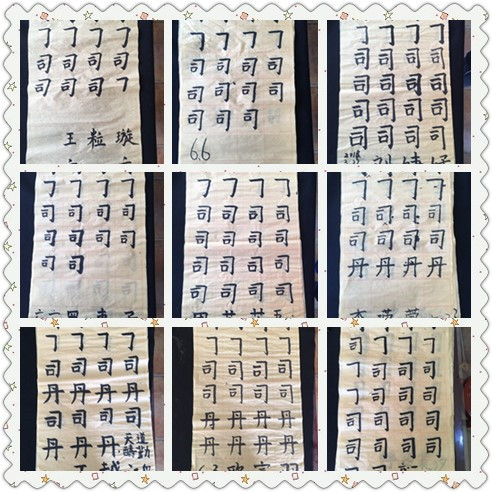 𠃌 𠃌 𠃌 𠃌
司 司 司
司 司 司 𠃌
王 粒 璇
𠃌 𠃌 𠃌 𠃌
司 司 司 司
司 司 司 司
司 司 司
6.6
𠃌 𠃌 𠃌 𠃌
司 司 司 司
司 司 司 司
司 司 司 司
司 司 司 司
𠃌 𠃌 𠃌 𠃌
司 司 司 司
司 司 司 司
司 司
𠃌 𠃌 𠃌 𠃌
司 司 司 司
司 司 司 司
司 司 司 司
司 司 司 司
𠃌 𠃌 𠃌 𠃌
司 司 司 司
司 司 司 司
丹 丹 丹 丹
𠃌 𠃌 𠃌 𠃌
司 司 司 司
丹 丹 丹 丹
司 司 司 司
丹 丹 丹
𠃌 𠃌 𠃌 𠃌
司 司 司 司
司 司 司 司
丹 丹 丹 丹
丹 丹 丹 丹
司 𠃌 𠃌 𠃌
𠃌 司 司 司
𠃌 司 司 司
司 司 司 司
司 司 司 司